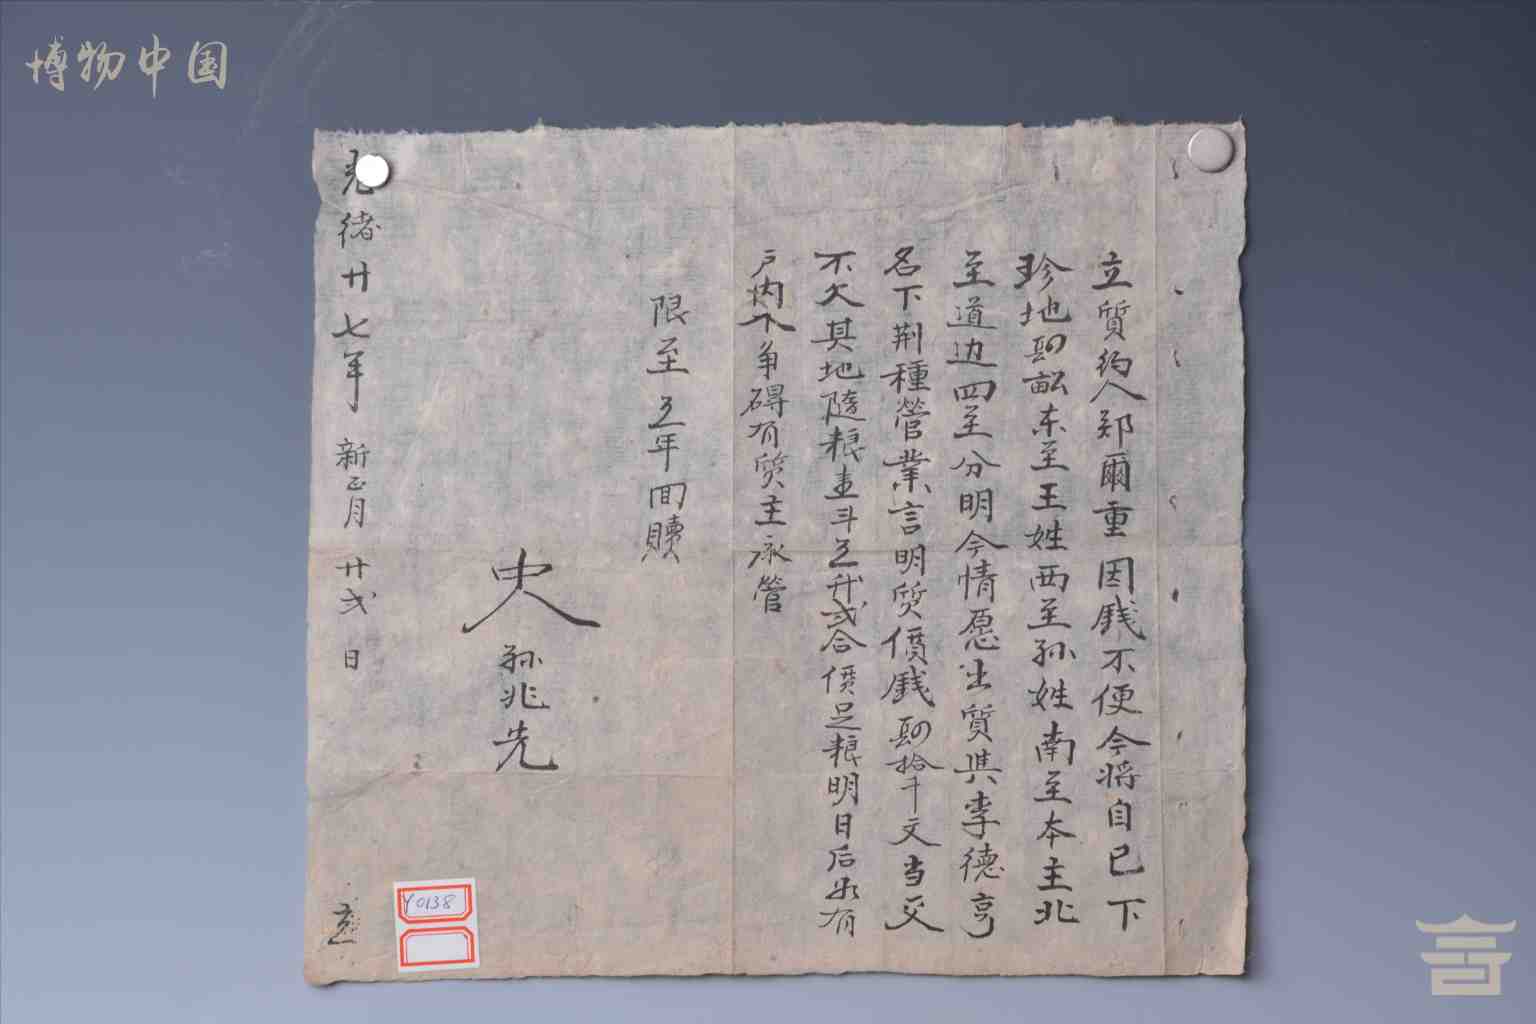 博物中国
立質約人郑爾重因銭不便今将自己下
珍地四畝东至王姓西至孙姓南至本主北
至道边四至分明今情愿出質與李德亨
名下荆種營業言明質價銭四拾千文当交
不欠其地随粮壹斗五升弍合價足粮明日后如有
户内人争碍有質主承管
限至五年回贖
中人 孙兆先
光绪廿七年 新正月 廿弍日 立
Y0138